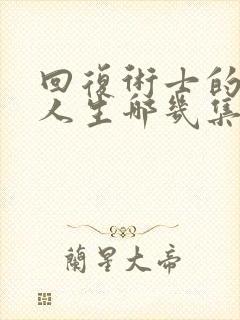 回復術士的
人生哪幾集
蘭星大帝